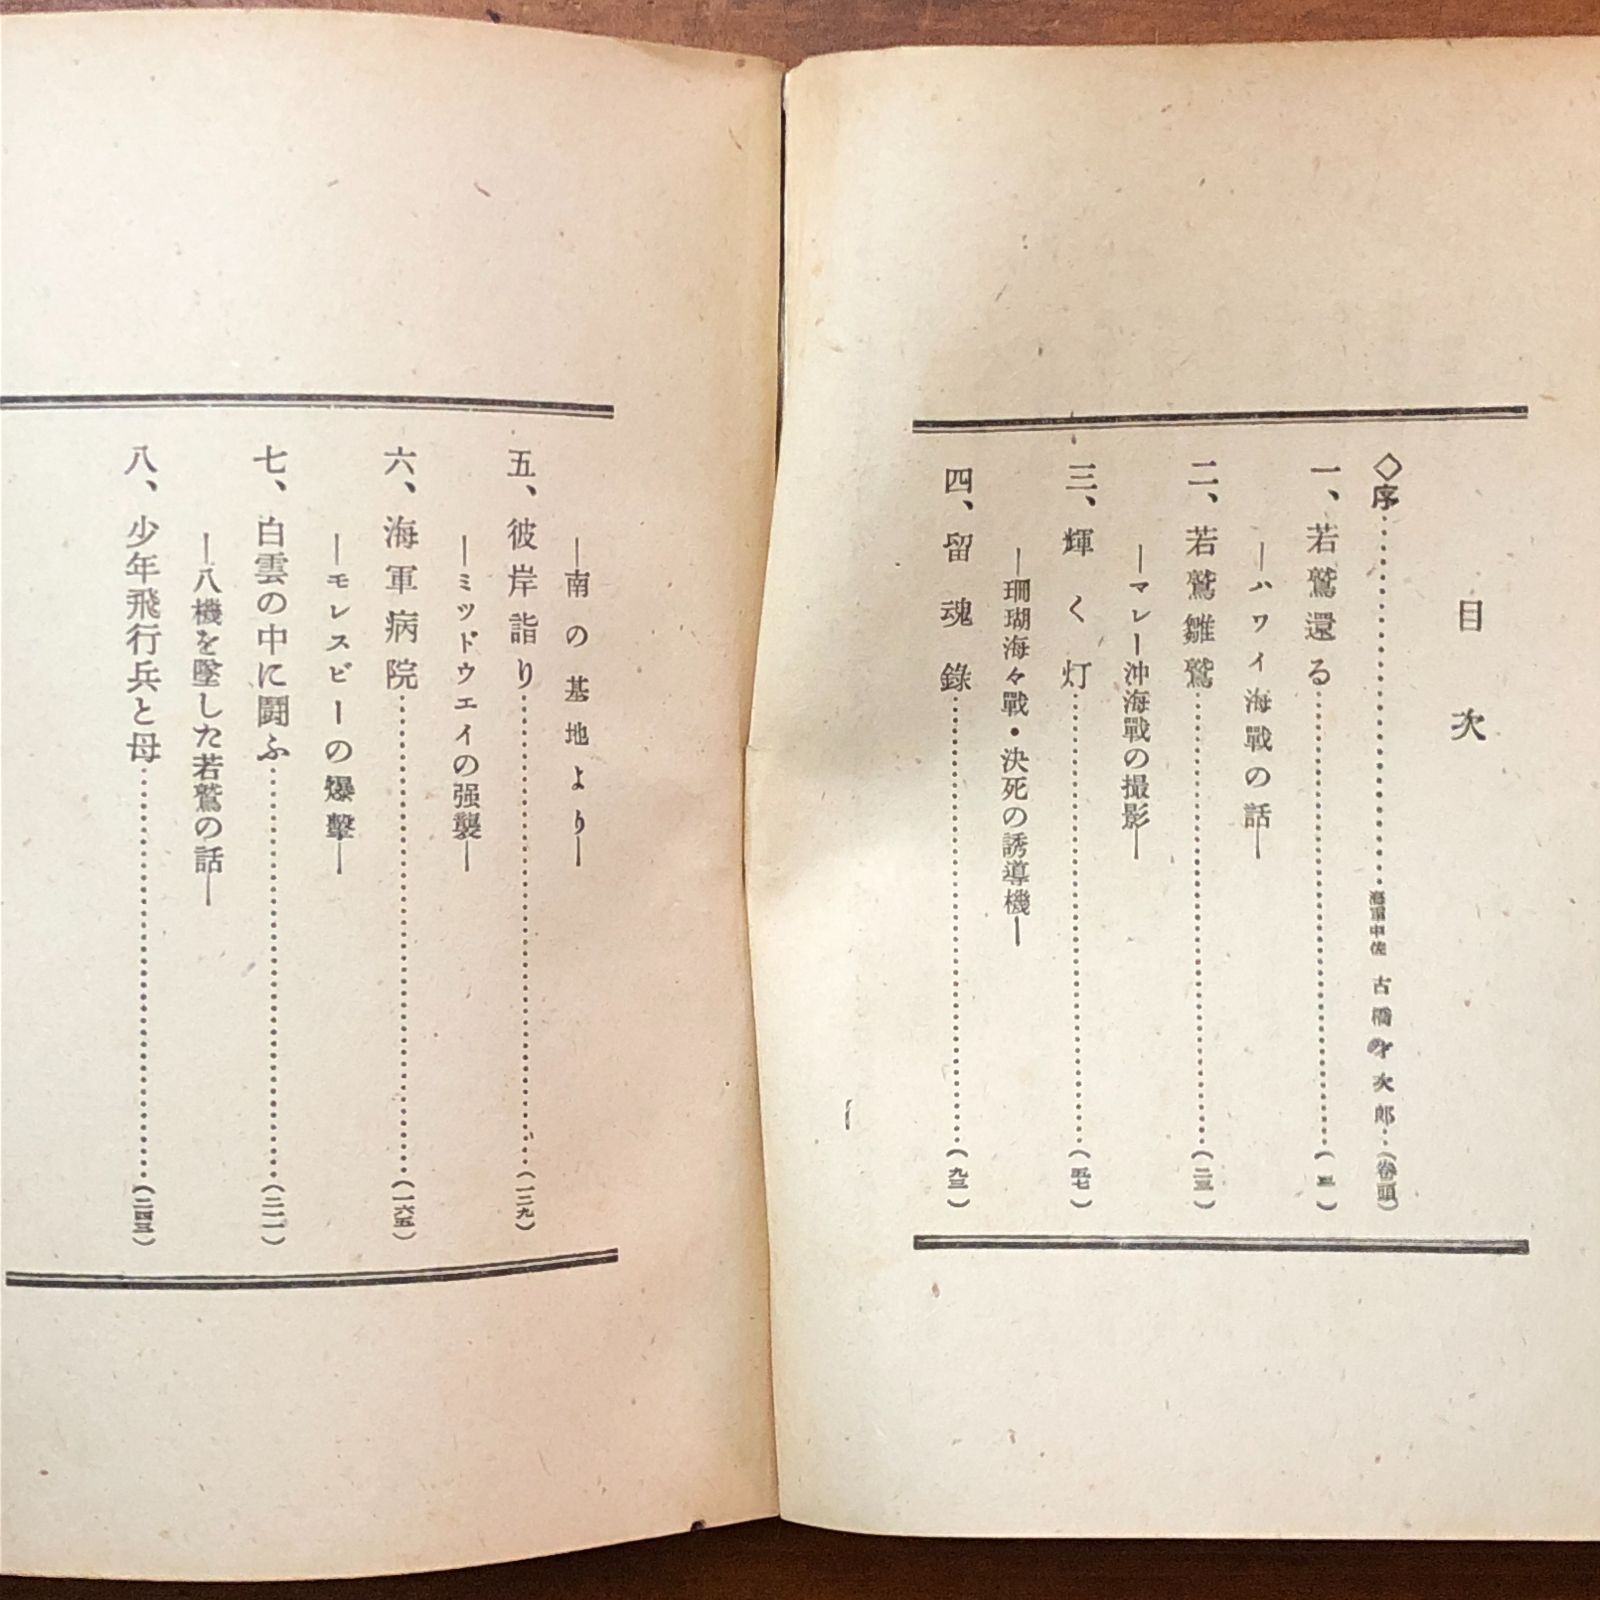 目次
◇序………海軍中佐 古橋才次郎…(卷頭)
一、若鷲還る………(三)
―ハワイ海戰の話―
二、若鷲雛鷲………(二三)
―マレー沖海戰の撮影―
三、輝く灯………(五七)
―珊瑚海々戰・決死の誘導機―
四、留魂錄………(九三)
―南の基地より―
五、彼岸詣り………(一二九)
―ミッドウエイの强襲―
六、海軍病院………(一六五)
―モレスビーの爆擊―
七、白雲の中に鬪ふ………(二一一)
―八機を墜した若鷲の話―
八、少年飛行兵と母………(二四三)